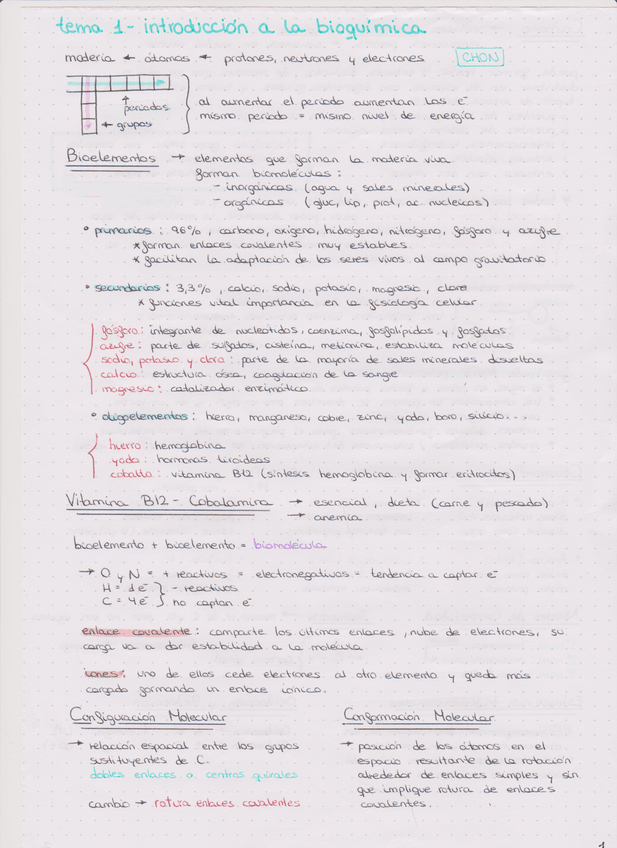 tema 1 - introducción a la bioquímica
materia ← átomos ← protones, neutrones y electrones CHON
↑ periodos
← grupos
al aumentar el periodo aumentan los e⁻
mismo periodo = mismo nivel de energía
Bioelementos → elementos que forman la materia viva
forman biomoléculas:
- inorgánicas (agua y sales minerales)
- orgánicas (gluc, lip, prot, ac. nucleicos)
• primarios: 96%, carbono, oxígeno, hidrógeno, nitrógeno, fósforo y azufre
* forman enlaces covalentes muy estables
* facilitan la adaptación de los seres vivos al campo gravitatorio
• secundarios: 3,3%, calcio, sodio, potasio, magnesio, cloro
* funciones vital importancia en la fisiología celular
fósforo: integrante de nucleótidos, coenzima, fosfolípidos y fosfatos
azufre: parte de sulfatos, cisteína, metionina, estabiliza moléculas
sodio, potasio y cloro: parte de la mayoría de sales minerales disueltas
calcio: estructura ósea, coagulación de la sangre
magnesio: catalizador enzimático
• oligoelementos: hierro, manganeso, cobre, zinc, yodo, boro, silicio...
hierro: hemoglobina
yodo: hormonas tiroideas
cobalto: vitamina B12 (síntesis hemoglobina y formar eritrocitos)
Vitamina B12 - Cobalamina → esencial, dieta (carne y pescado)
→ anemia
bioelemento + bioelemento = biomolécula
→ O y N = + reactivos = electronegativos = tendencia a captar e⁻
H = 1e⁻ } - reactivos
C = 4e⁻ } no captan e⁻
enlace covalente: comparte los últimos enlaces, nube de electrones, su
carga va a dar estabilidad a la molécula
iones: uno de ellos cede electrones al otro elemento y queda más
cargado formando un enlace iónico.
Configuración Molecular
→ relación espacial entre los grupos
sustituyentes de C.
dobles enlaces o centros quirales
cambio → rotura enlaces covalentes
Conformación Molecular
→ posición de los átomos en el
espacio resultante de la rotación
alrededor de enlaces simples y sin
que implique rotura de enlaces
covalentes.
1